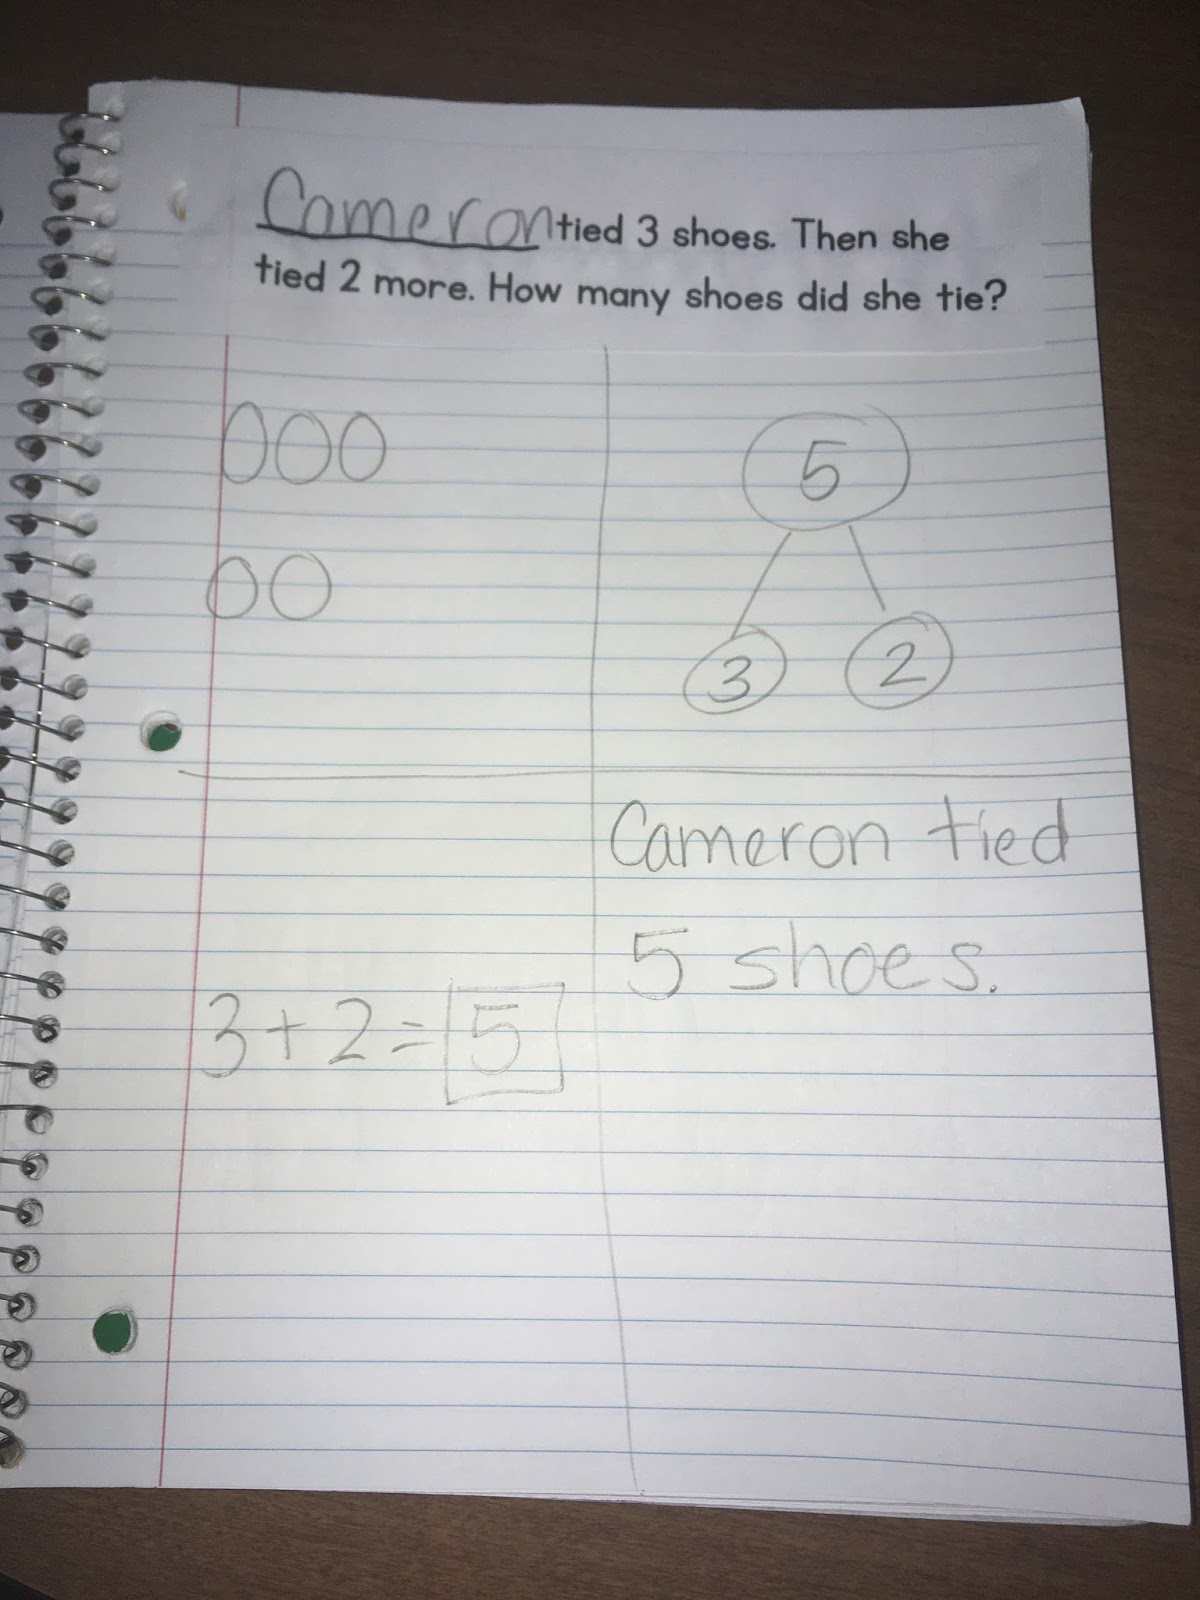 Cameron tied 3 shoes. Then she
tied 2 more. How many shoes did she tie?
5
3 2
3+2=5
Cameron tied
5 shoes.